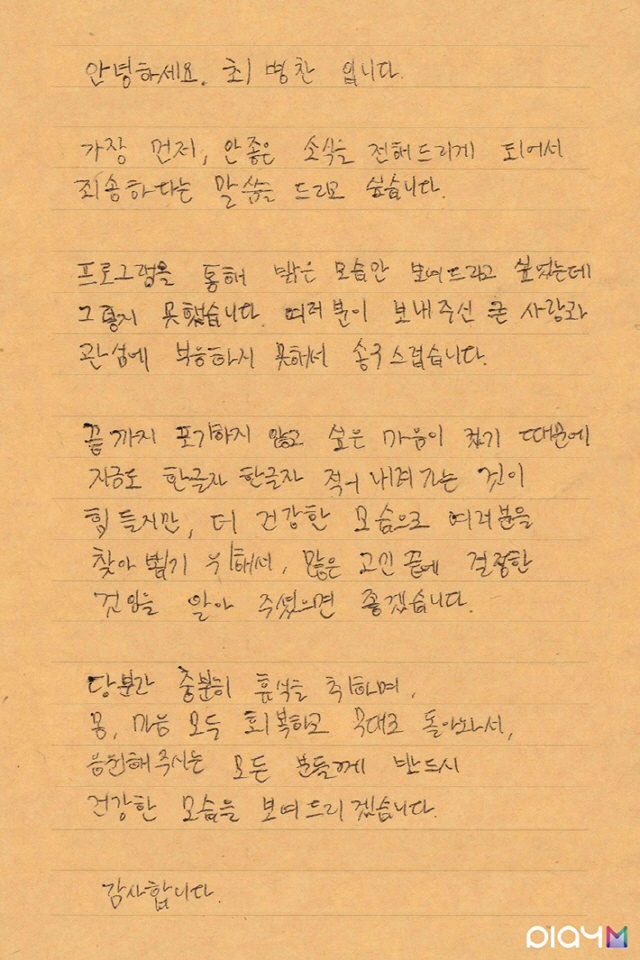 안녕하세요. 최병찬 입니다.
가장 먼저, 안좋은 소식을 전해드리게 되어서
죄송하다는 말씀을 드리고 싶습니다.
프로그램을 통해 밝은 모습만 보여드리고 싶었는데
그렇지 못했습니다. 여러분이 보내주신 큰 사랑과
관심에 보응하지 못해서 송구스럽습니다.
끝까지 포기하지 않고 싶은 마음이 컸기 때문에
지금도 한글자 한글자 적어 내려가는 것이
힘들지만, 더 건강한 모습으로 여러분을
찾아 뵙기 위해서, 많은 고민 끝에 결정한
것임을 알아 주셨으면 좋겠습니다.
당분간 충분히 휴식을 취하며,
몸, 마음 모두 회복하고 그대로 돌아와서,
응원해주시는 모든 분들께 반드시
건강한 모습을 보여드리겠습니다.
감사합니다.
PLAYM